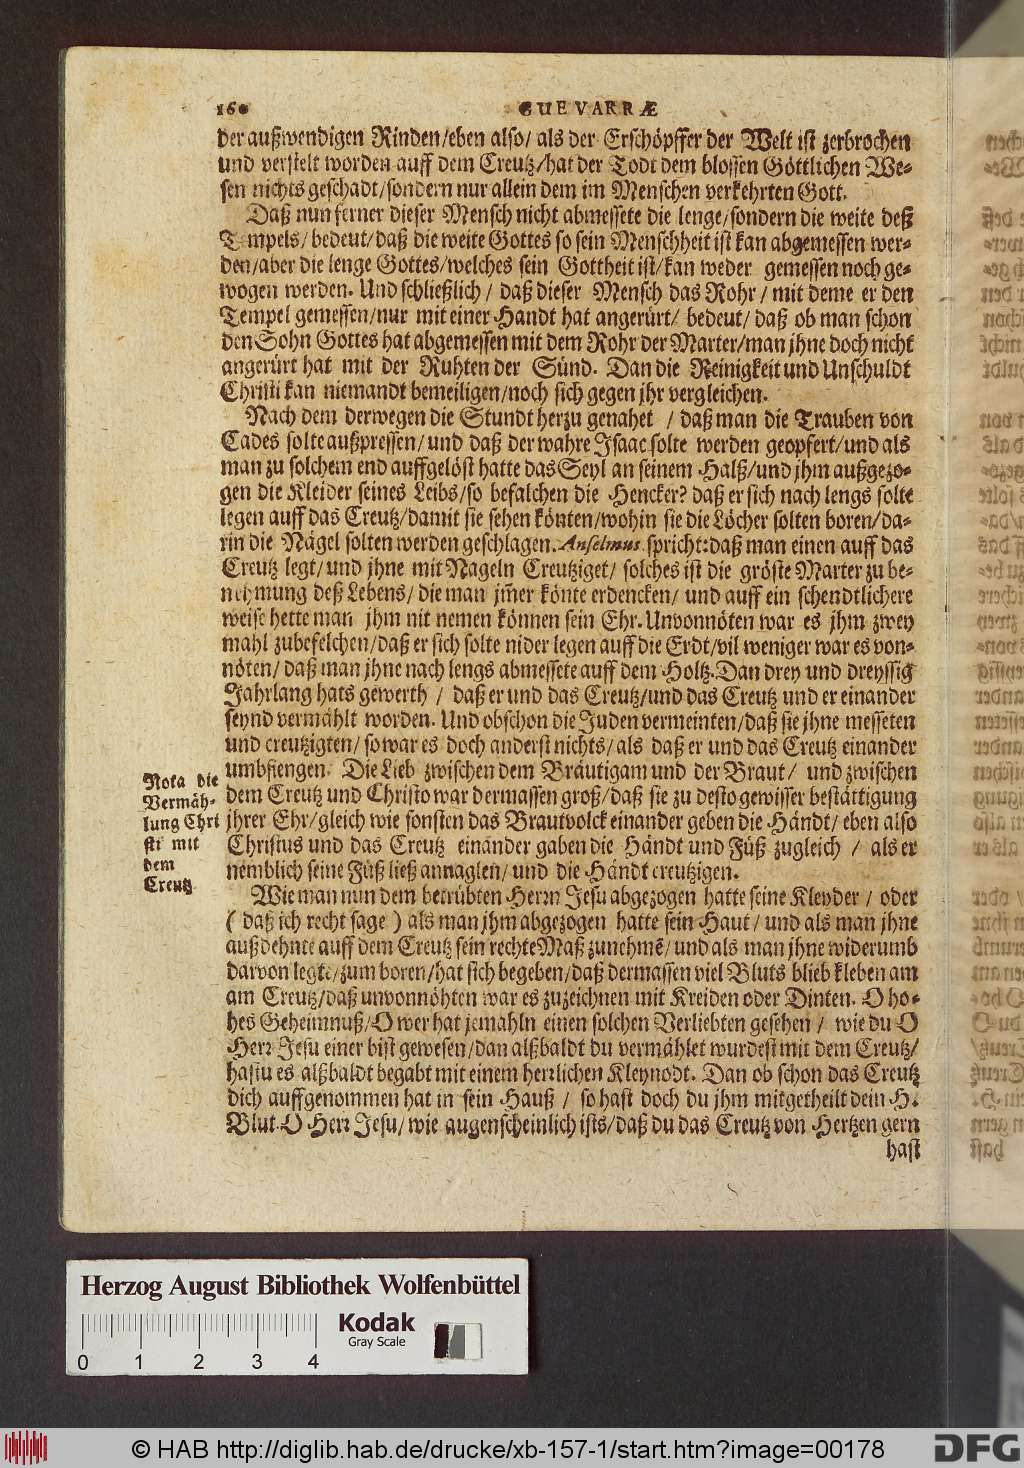 160 GUEVARRÆ
der außwendigen Rinden/eben also/ als der Erschöpffer der Welt ist zerbrochen
und verstelt worden auff dem Creutz/hat der Todt dem blossen Göttlichen We-
sen nichts geschadt/sondern nur allein dem im Menschen verkehrten Gott.
Daß nun ferner dieser Mensch nicht abmessete die lenge/sondern die weite deß
Tempels/ bedeut/daß die weite Gottes so sein Menschheit ist kan abgemessen wer-
den/aber die lenge Gottes/welches sein Gottheit ist/kan weder gemessen noch ge-
wogen werden. Und schließlich/ daß dieser Mensch das Rohr/ mit deme er den
Tempel gemessen/nur mit einer Handt hat angerürt/ bedeut/ daß ob man schon
den Sohn Gottes hat abgemessen mit dem Rohr der Marter/man jhne doch nicht
angerürt hat mit der Ruhten der Sünd. Dan die Reinigkeit und Unschuldt
Christi kan niemandt bemeiligen/noch sich gegen jhr vergleichen.
Nach dem derwegen die Stundt herzu genahet / daß man die Trauben von
Cades solte außpressen/und daß der wahre Isaac solte werden geopfert/und als
man zu solchem end auffgelöst hatte das Seyl an seinem Halß/und jhm außgezo-
gen die Kleider seines Leibs/so befalchen die Hencker? daß er sich nach lengs solte
legen auff das Creutz/damit sie sehen könten/wohin sie die Löcher solten boren/da-
rin die Nägel solten werden geschlagen. Anselmus spricht: daß man einen auff das
Creutz legt/und jhne mit Nageln Creutziget/ solches ist die gröste Marter zu be-
nehmung deß Lebens/ die man jm̃er könte erdencken/ und auff ein schendtlichere
weise hette man jhm nit nemen können sein Ehr. Unvonnöten war es jhm zwey
mahl zubefelchen/daß er sich solte nider legen auff die Erdt/vil weniger war es von-
nöten/ daß man jhne nach lengs abmessete auff dem Holtz. Dan drey und dreyssig
Jahrlang hats gewerth / daß er und das Creutz/und das Creutz und er einander
seynd vermählt worden. Und obschon die Juden vermeinten/daß sie jhne messeten
und creutzigten/ so war es doch anderst nichts/als daß er und das Creutz einander
umbfiengen. Die Lieb zwischen dem Bräutigam und der Braut/ und zwischen
dem Creutz und Christo war dermassen groß/daß sie zu desto gewisser bestättigung
jhrer Ehr/gleich wie sonsten das Brautvolck einander geben die Händt/ eben also
Christus und das Creutz einander gaben die Händt und Füß zugleich / als er
nemblich seine Füß ließ annaglen/ und die Händt creutzigen.
Nota die
Vermäh-
lung Chri
sti mit
dem
Creutz
Wie man nun dem betrübten Herrn Jesu abgezogen hatte seine Kleyder / oder
( daß ich recht sage ) als man jhm abgezogen hatte sein Haut/ und als man jhne
außdehnte auff dem Creutz sein rechte Maß zunehmẽ/ und als man jhne widerumb
darvon legte/zum boren/hat sich begeben/daß dermassen viel Bluts blieb kleben am
am Creutz/daß unvonnöhten war es zuzeichnen mit Kreiden oder Dinten. O ho-
hes Geheimnuß/O wer hat jemahln einen solchen Verliebten gesehen / wie du O
Herr Jesu einer bist gewesen/dan alßbaldt du vermählet wurdest mit dem Creutz/
hastu es alßbaldt begabt mit einem herrlichen Kleynodt. Dan ob schon das Creutz
dich auffgenommen hat in sein Hauß / so hast doch du jhm mitgetheilt dein H.
Blut. O Herr Jesu/ wie augenscheinlich ists/daß du das Creutz von Hertzen gern
hast
Herzog August Bibliothek Wolfenbüttel
Kodak
Gray Scale
0 1 2 3 4
© HAB http://diglib.hab.de/drucke/xb-157-1/start.htm?image=00178
DFG